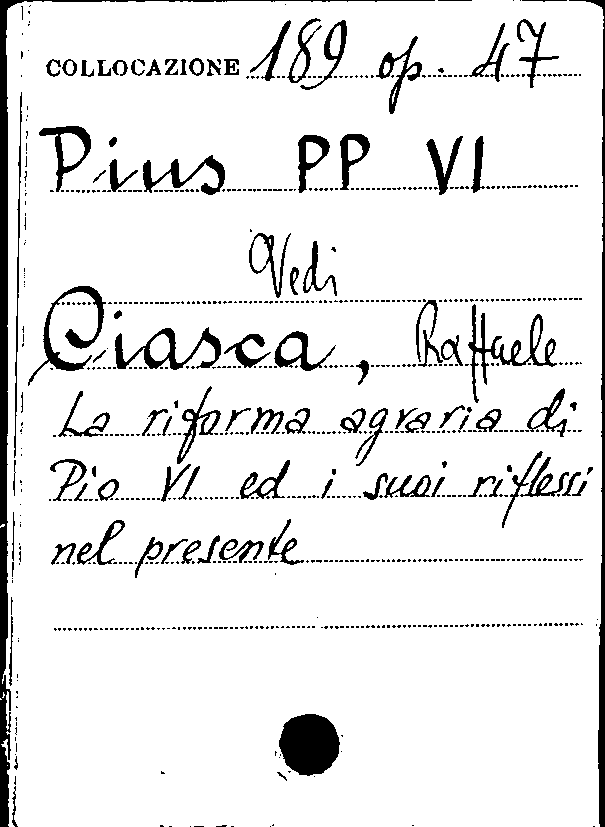 COLLOCAZIONE 189 op. 47
Pius PP VI
Vedi
Ciasca, Raffaele
La riforma agraria di
Pio VI ed i suoi riflessi
nel presente